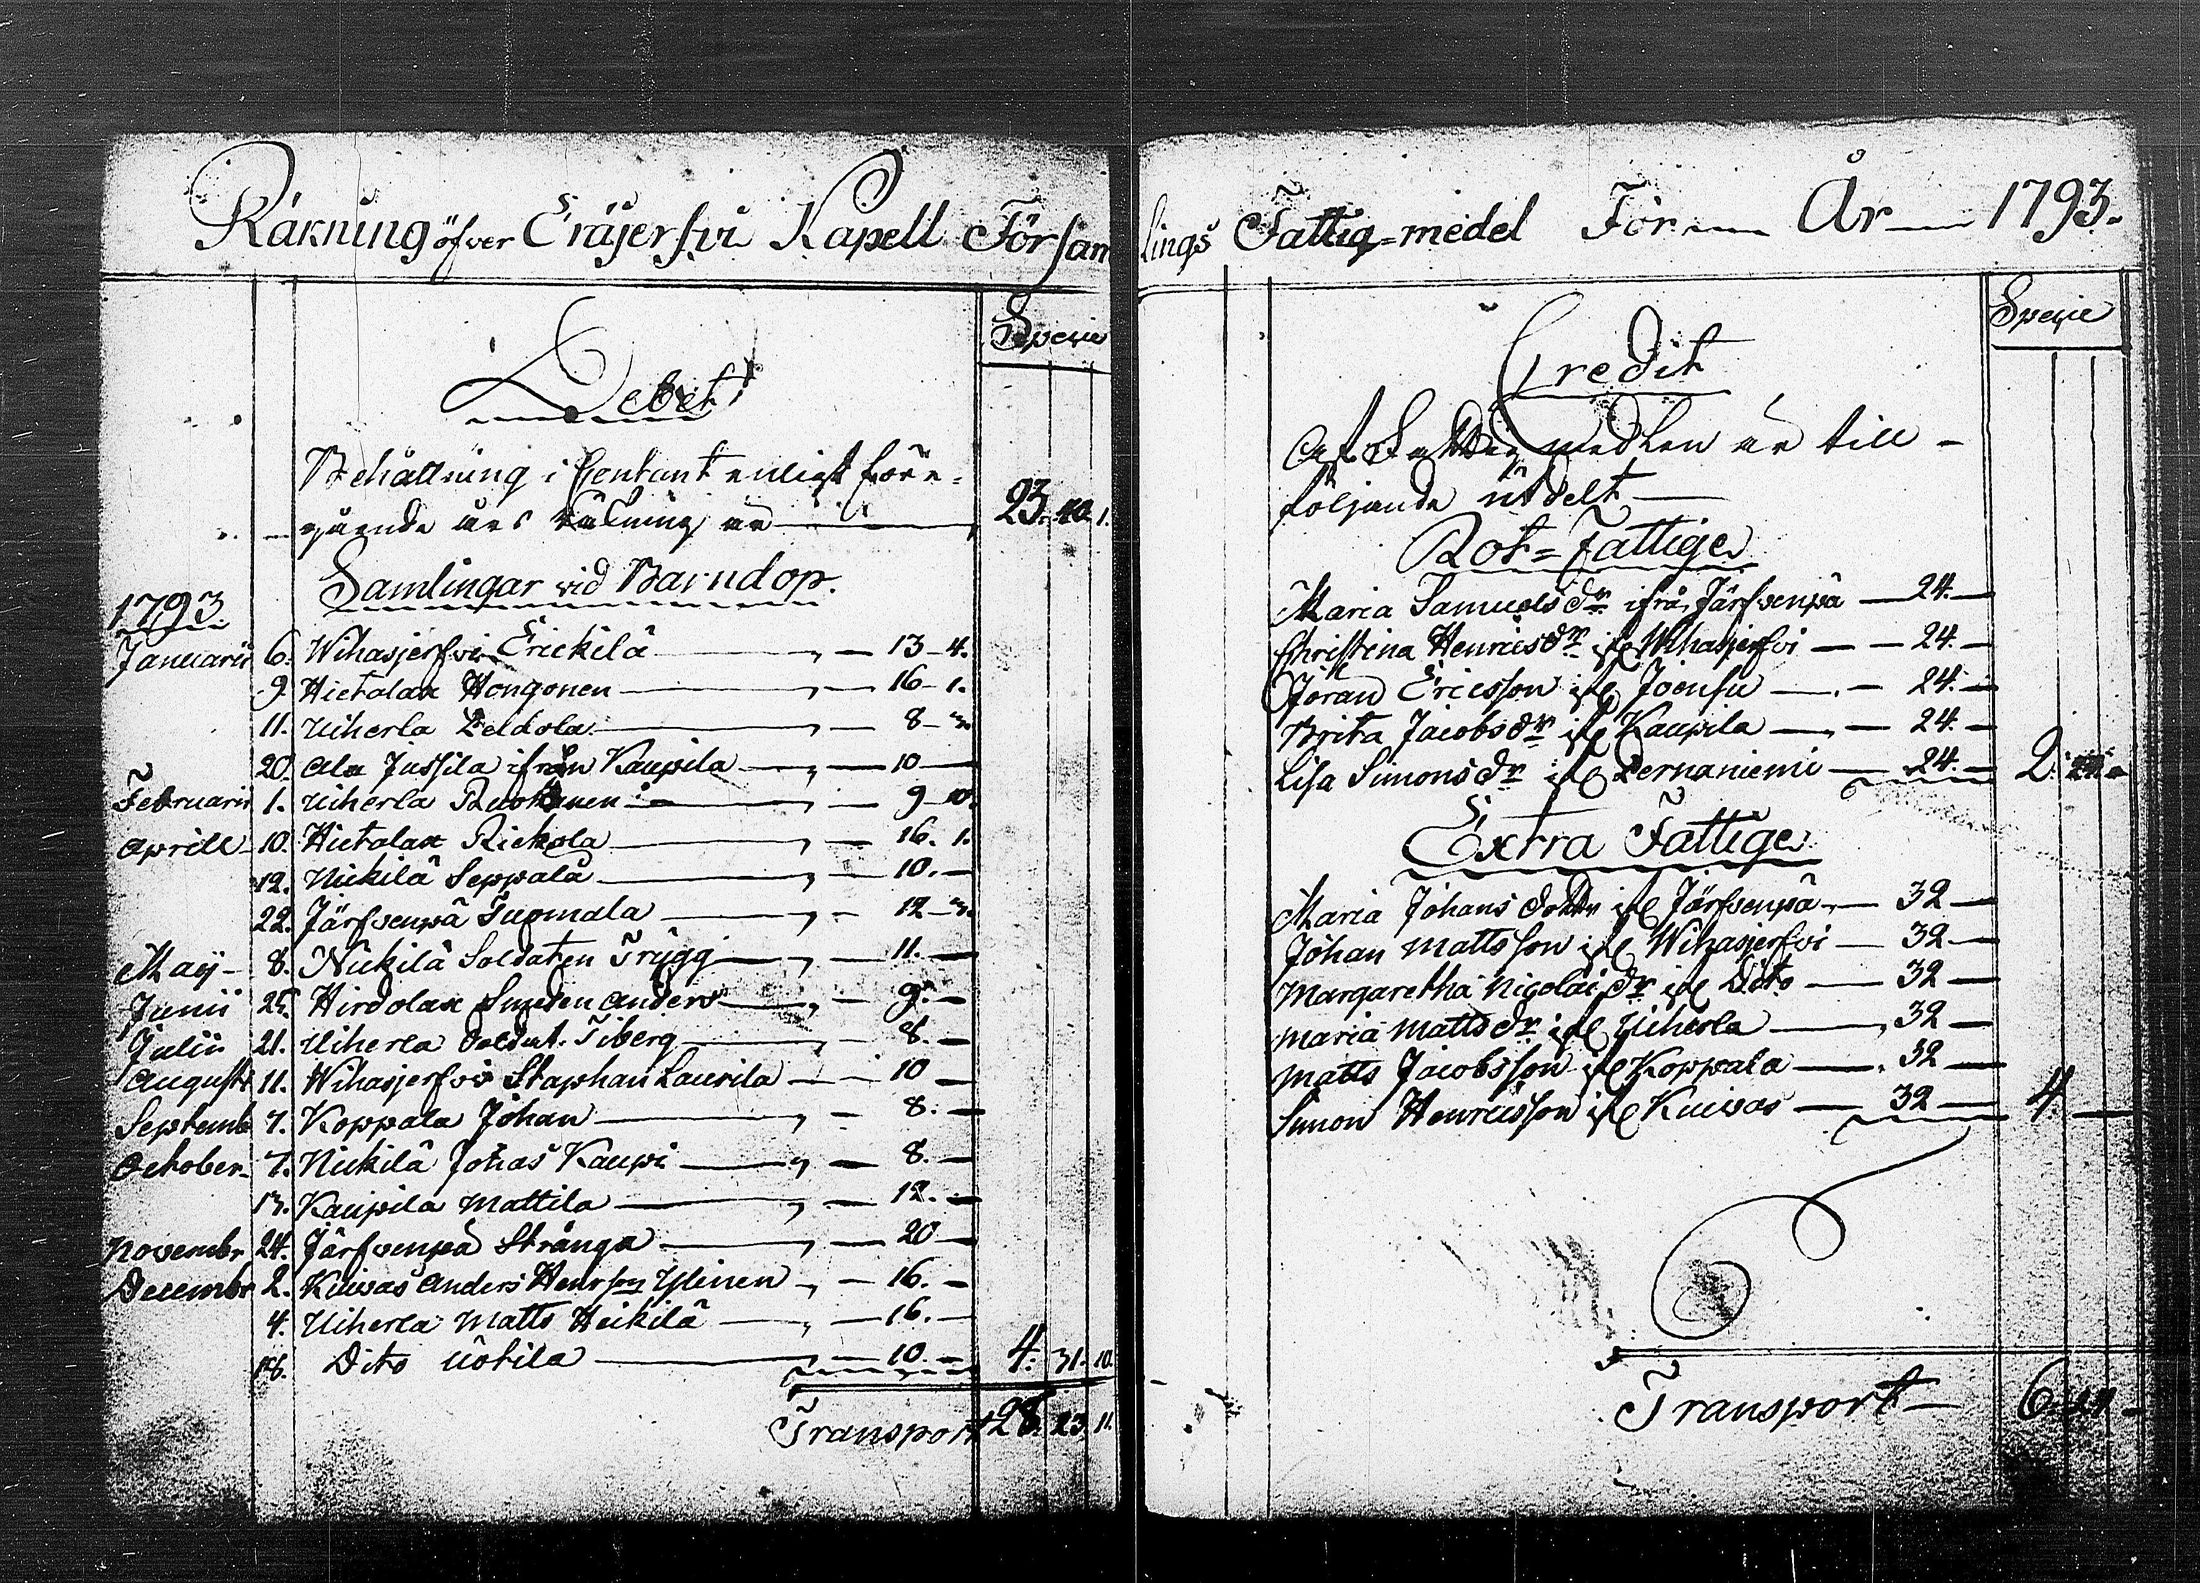 Räkning öfver Eräjerfvi Kapell Försam
Debet
Specie
Behållning i Contant enligt före-
gående års räkning är — 23. 40. 1.
Samlingar vid Barndop.
1793.
Januarii 6. Wihasjerfvi Erickilä — 13 — 4.
9. Hietalax Hongonen — 16 — 1.
11. Uiherla Peldola — 8 — 3.
20. Ala Jussila ifrån Kaupila — 10 —
Februarii 1. Uiherla — 9 — 10.
Aprill 10. Hietalax Rickola — 16. 1.
12. Nickilä Seppälä — 10. —
22. Järfvenpä Tuomala — 12 — 3.
Maij — 8. Nickilä Soldaten Trygg — 11. —
Junii 25. Anders — 9. —
Julii 21. Uiherla Soldat. Tiberg — 8. —
Augusti 11. Wihasjerfvi Staphan Laurila — 10 —
Septemb 7. Koppala Johan — 8. —
October 7. Nickilä Johas Kaupi — 8. —
13. Kaupila Mattila — 12. —
Novembr 24. Järfvenpä Strånga — 20 —
Decembr 2. Kuivas Anders Henrsson Ylinen — 16. —
4. Uiherla Matts Heikilä — 16. —
18. Dito Uotila — 10. — 4. 31. 10.
Transport 28. 23. 11.
lings Fattig=medel För — År — 1793.
Credit
Specie
Af Fattig medlen är till-
följande utdelt —
Rot=Fattige
Maria Samuelsdr ifrån Järfvenpä — 24. —
Christina Henricsdr ifr Wihasjerfvi — 24. —
Jöran Ericsson ifr Joensu — 24. —
Brita Jacobsdr ifr Kaupila — 24. —
Lisa Simonsdr ifr Pernaniemi — 24. — 2. 24. —
Extra Fattige
Maria Johans dottr ifr Järfvenpä — 32 —
Johan Mattsson ifr Wihasjerfvi — 32 —
Margaretha Nicolai dr ifr Dito — 32 —
Maria Mattsdr ifr Uiherla — 32 —
Matts Jacobsson ifr Koppala — 32 —
Simon Henricsson ifr Kuivas — 32 — 4. —
Transport — 6. 24. —